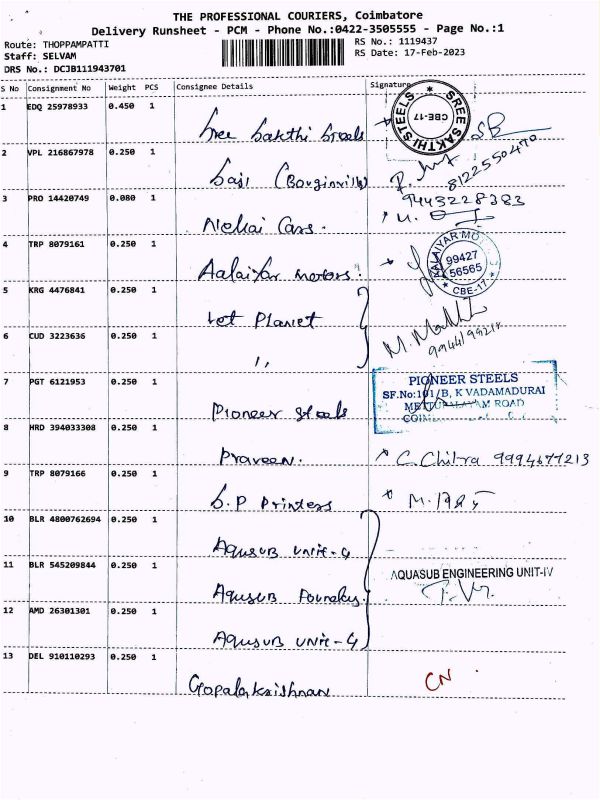 THE PROFESSIONAL COURIERS, Coimbatore
Delivery Runsheet - PCM - Phone No.:0422-3505555 - Page No.:1
Route: THOPPAMPATTI
Staff: SELVAM
DRS No.: DCJB111943701
RS No.: 1119437
RS Date: 17-Feb-2023
S No Consignment No Weight PCS Consignee Details Signature
1 EDQ 25978933 0.450 1 Sree Sakthi Steels
SREE SAKTHI STEELS CBE-17
SB
8122550470
2 VPL 216867978 0.250 1 Saji (Bouginvilla)
9443228383
3 PRO 14420749 0.080 1 Nekai Cars.
4 TRP 8079161 0.250 1 Aalaiyar Motors.
AALAIYAR MOTORS 99427 56565 CBE-17
5 KRG 4476841 0.250 1 Vet Planet
6 CUD 3223636 0.250 1 ,,
7 PGT 6121953 0.250 1 Pioneer Steels
PIONEER STEELS
SF.No:101/B, K VADAMADURAI
METTUPALAYAM ROAD
8 HRD 394033308 0.250 1 Praveen. C. Chitra 9994677213
9 TRP 8079166 0.250 1 S.P Printers
10 BLR 4800762694 0.250 1 Aqusub Unit-4
11 BLR 545209844 0.250 1 Aqusub Foundry.
AQUASUB ENGINEERING UNIT-IV
12 AMD 26301301 0.250 1 Aqusub Unit-4
13 DEL 910110293 0.250 1 Gopalakrishnan CN